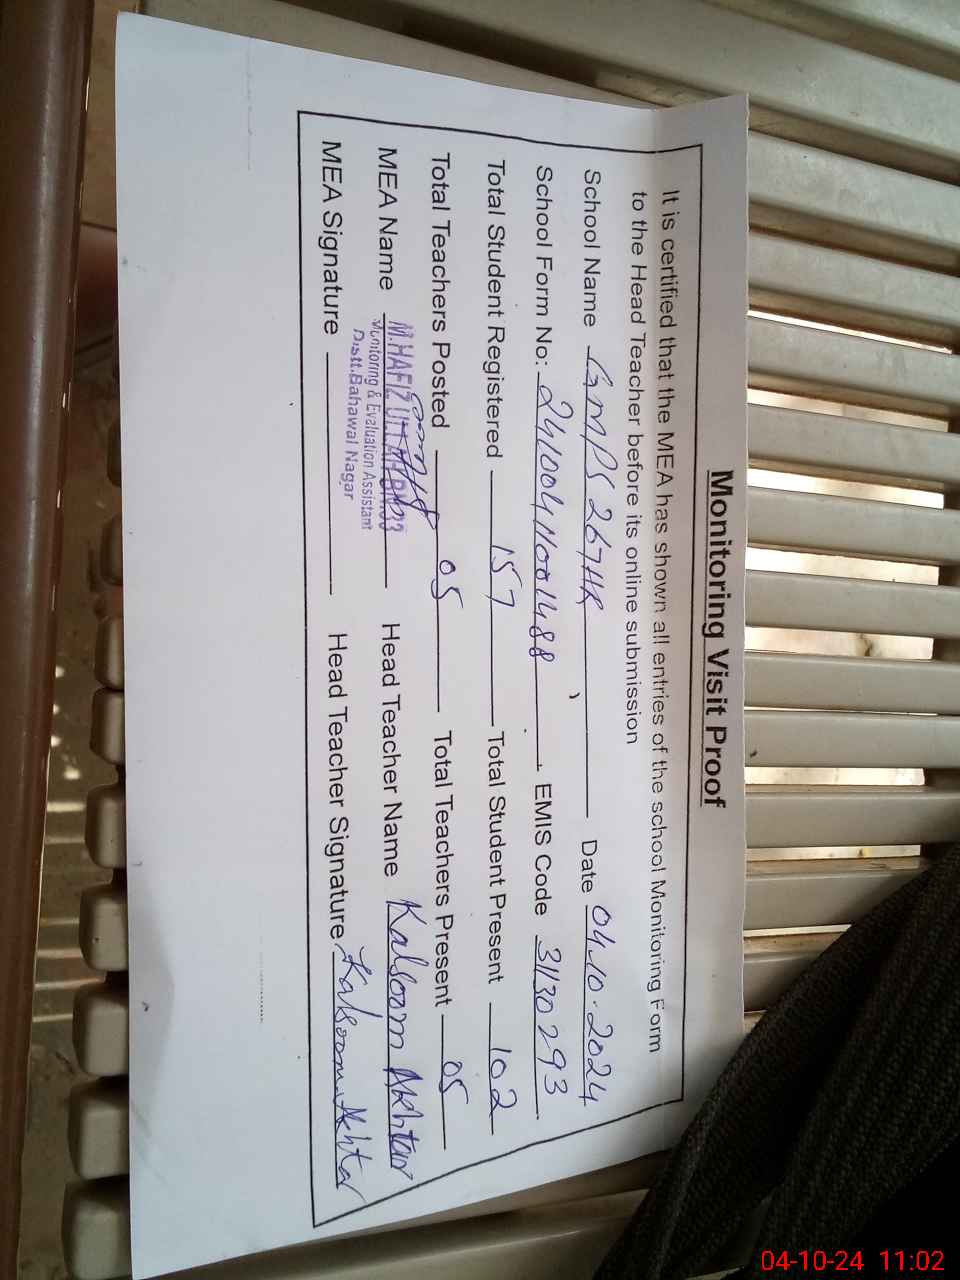 Monitoring Visit Proof
It is certified that the MEA has shown all entries of the school Monitoring Form
to the Head Teacher before its online submission
School Name GMPS 267HR Date 04-10-2024
School Form No: 2410041001488 EMIS Code 31130293
Total Student Registered 157 Total Student Present 102
Total Teachers Posted 05 Total Teachers Present 05
MEA Name M.HAFIZ Head Teacher Name Kalsoom Akhtar
Monitoring & Evaluation Assistant
Distt.Bahawal Nagar
MEA Signature Head Teacher Signature Kalsoom Akhtar
04-10-24 11:02